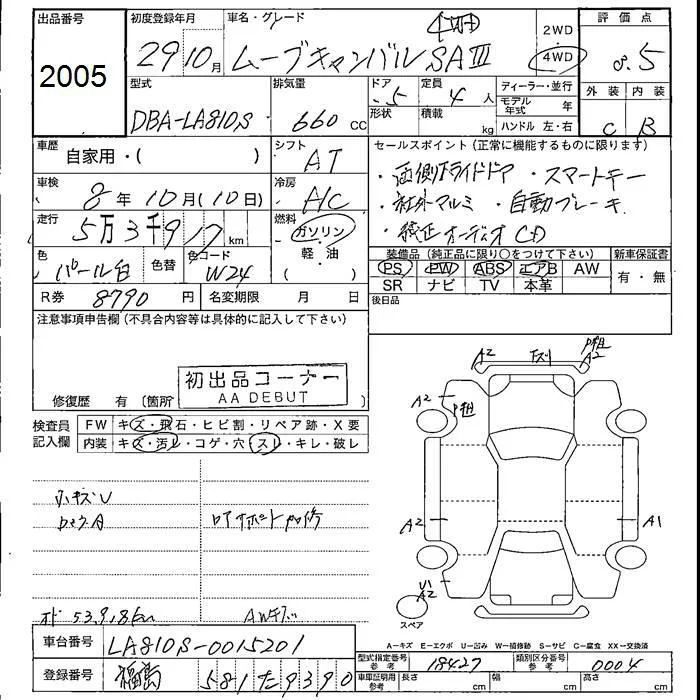 出品番号 初度登録年月 車名・グレード 評価点
2005 29 10月 ムーブキャンバル SAⅢ 4WD 2WD 4WD 8.5
型式 排気量 ドア 定員 ディーラー・並行 外装 内装
DBA-LA810S 660cc 5 4人 モデル年式 年 C B
形状 積載 kg ハンドル 左・右
車歴 自家用・( ) シフト AT セールスポイント(正常に機能するものに限ります)
車検 8年10月(10日) 冷房 AC ・両側スライドドア ・スマートキー
走行 5万3千917km 燃料 ガソリン ・社外アルミ ・自動ブレーキ
軽・油 ・純正オーディオ CD
色 パール白 色替 色コード W24 装備品(純正品に限り○をつけて下さい) 新車保証書
PS PW ABS エアB AW 有・無
R券 8790円 名変期限 月 日 SR ナビ TV 本革
注意事項申告欄(不具合内容等は具体的に記入して下さい) 後日品
初出品コーナー
AA DEBUT
修復歴 有(箇所 )
検査員記入欄 FW キズ・飛石・ヒビ割・リペア跡・X要
内装 キズ・汚レ・コゲ・穴・スレ・キレ・破レ
A2 下ズリ A2
A2
A2 A1
U1
A2
スペア
小キズU
AWキズ
車台番号 LA810S-0015201
A-キズ E-エクボ U-凹み W-補修跡 S-サビ C-腐食 XX-交換済
型式指定番号 参考 18427 類別区分番号 参考 0004
登録番号 福島 581 た 9390 車庫証明用 参考 長さ cm 幅 cm 高さ cm